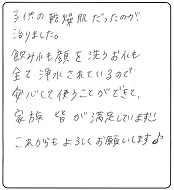 子供の乾燥肌だったのが
治りました。
飲み水も顔を洗うお水も
全て浄水されているので
安心して使うことができて、
家族 皆が満足しています!!
これからもよろしくお願いします♪